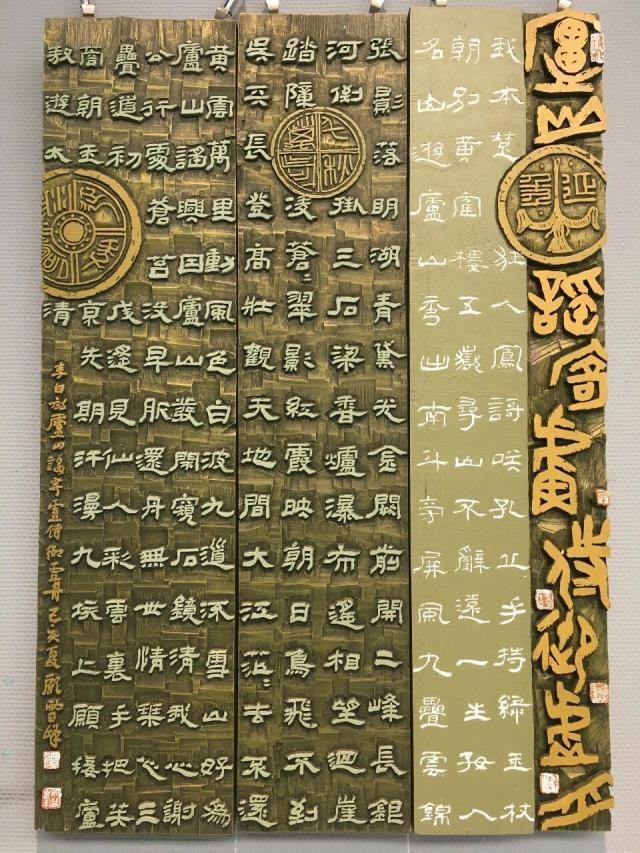 廬山謠寄盧侍御虛舟
我本楚狂人鳳謌咲孔丘手持綠玉杖
朝別黃寉樓五嶽尋山不辭遠一生好入
名山遊廬山秀出南斗旁屏風九疊雲錦
張影落明湖青黛光金闕前開二峰長銀
河倒掛三石梁香爐瀑布遙相望迴崖
踏障凌蒼〻翠影紅霞映朝日鳥飛不到
吳天長登高壯觀天地間大江茫〻去不還
黃雲萬里動風色白波九道流雪山好為
廬山謠興因廬山發閑窺石鏡清我心謝
公行處蒼苔沒早服還丹無世情琴心三
疊道初成遙見仙人彩雲裏手把芙
蓉朝玉京先期汗漫九垓上願接盧
敖遊太清
李白詩廬山謠寄盧侍御虛舟己亥夏